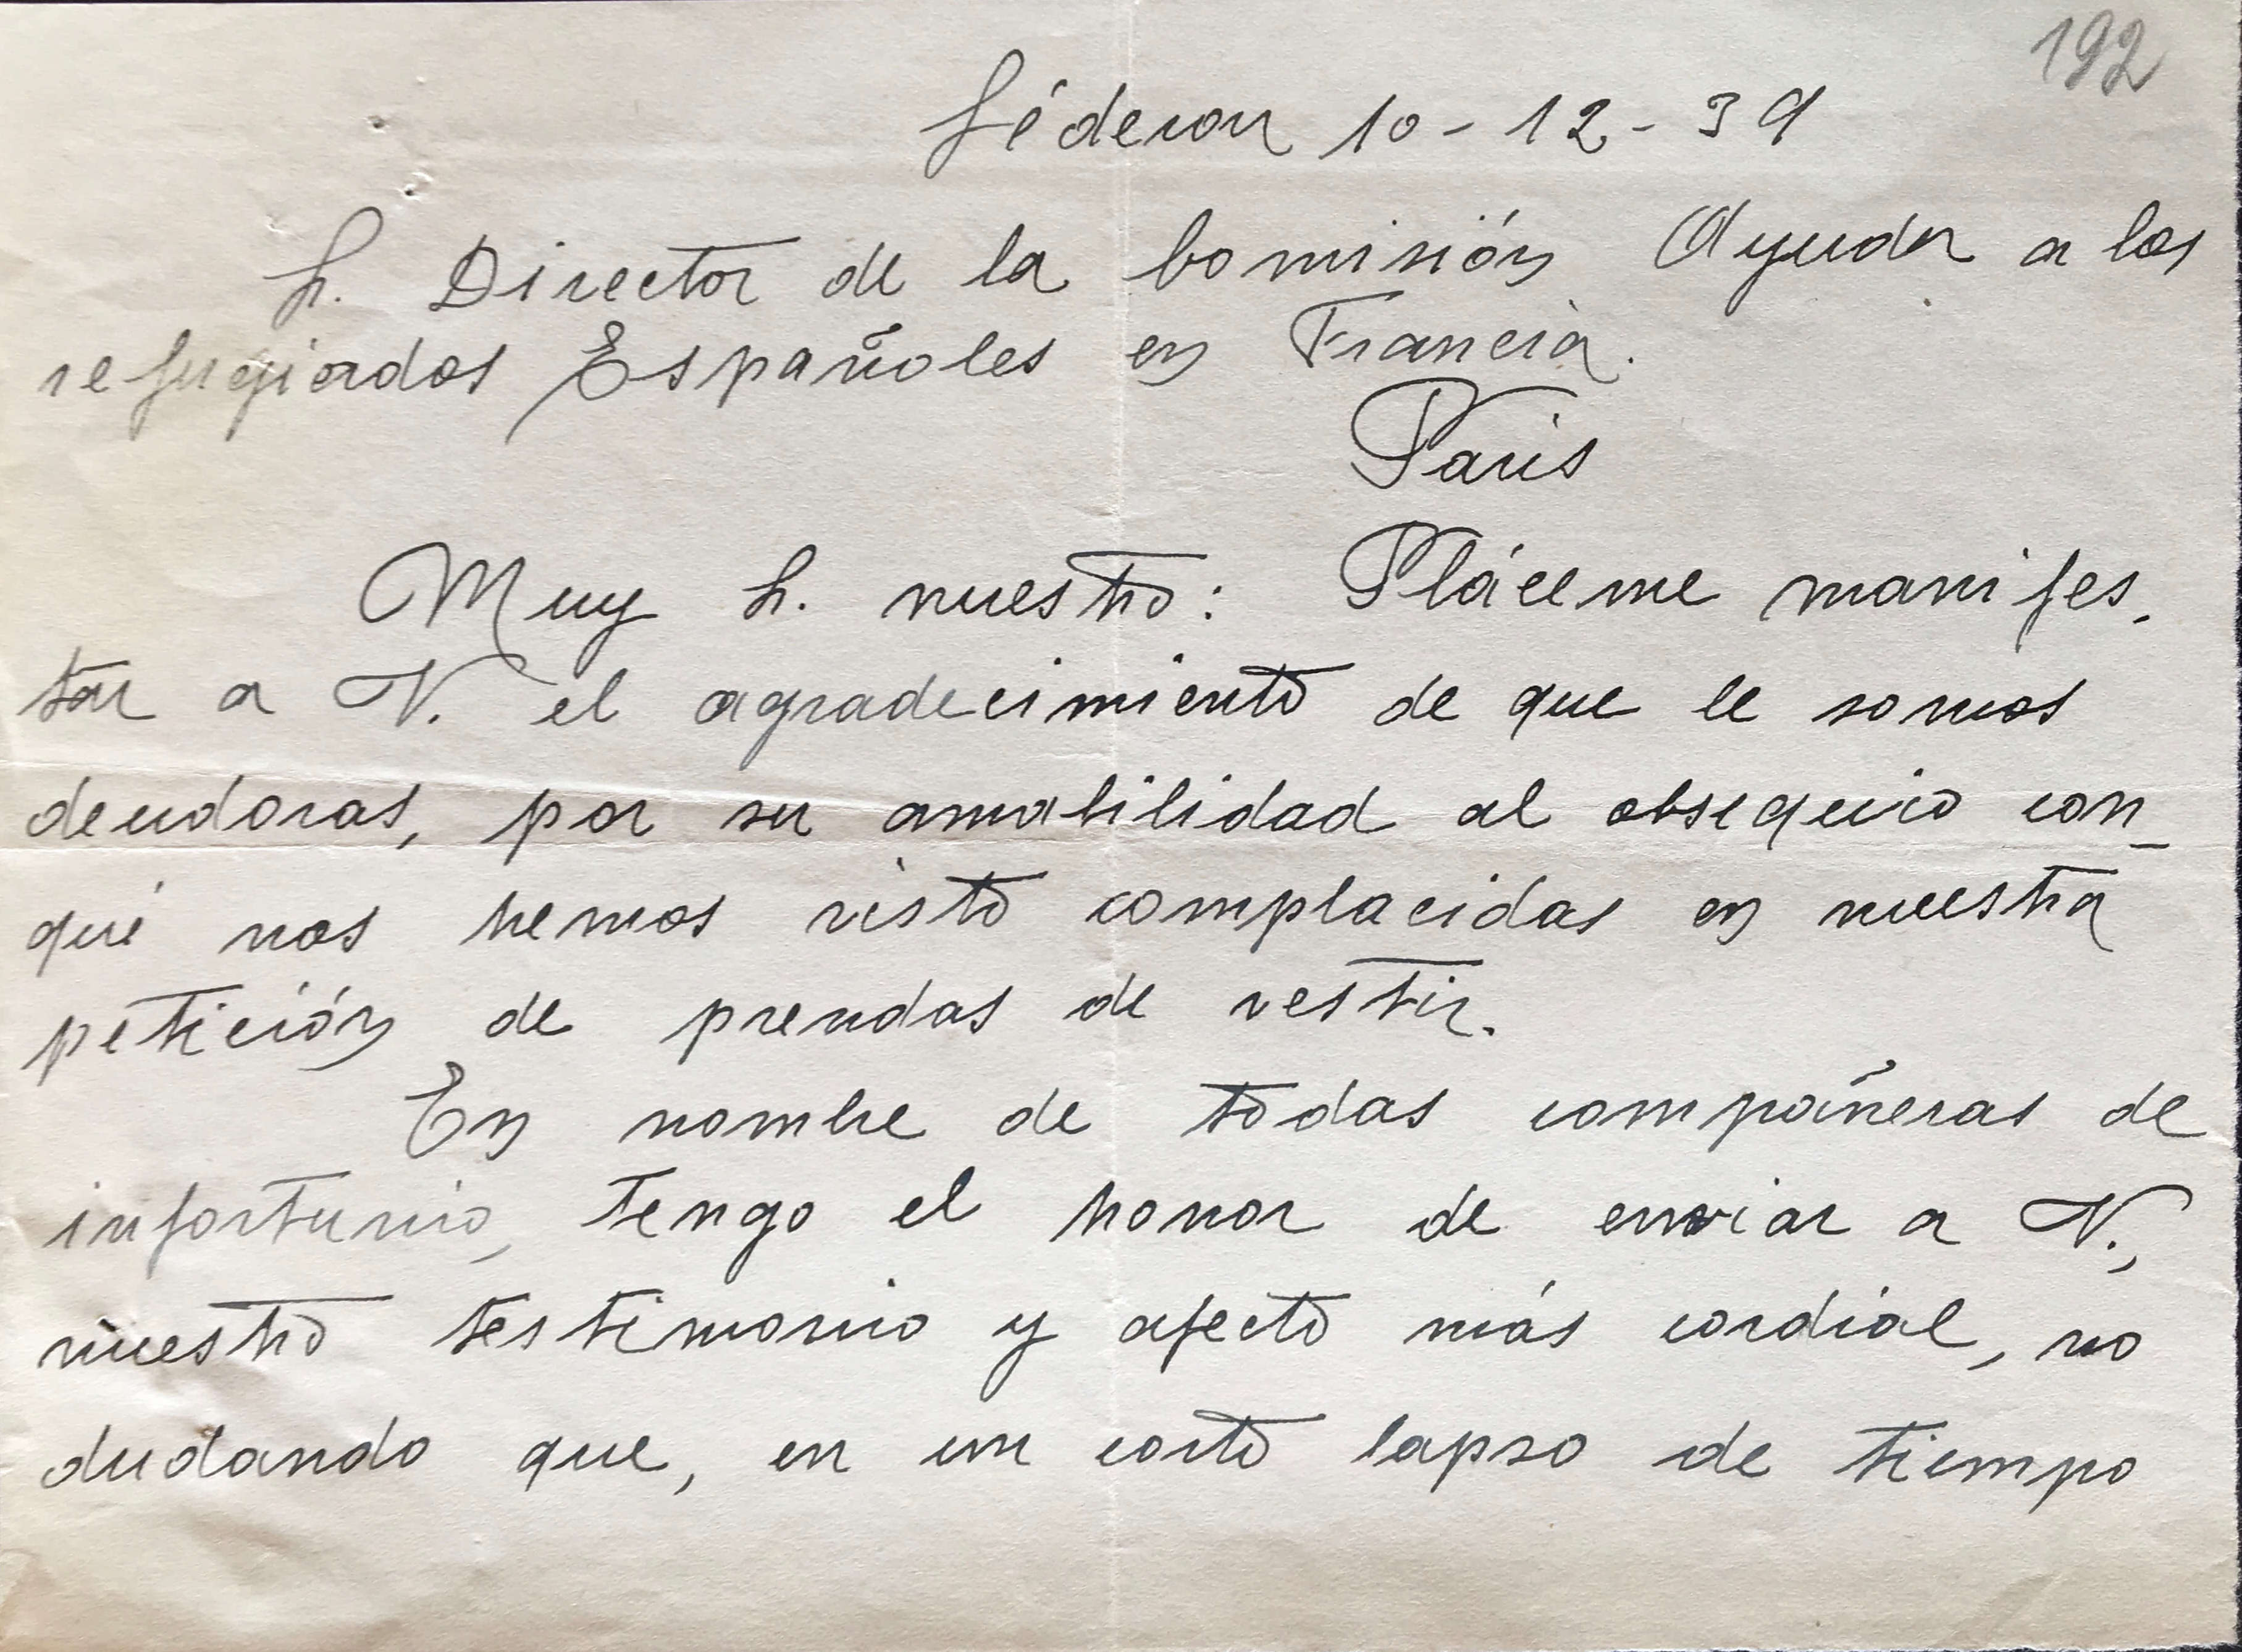 192
Séderon 10-12-39
S. Director de la Comisión Ayuda a los
refugiados Españoles en Francia.
Paris
Muy S. nuestro: Pláceme manifes-
tar a V. el agradecimiento de que le somos
deudoras, por su amabilidad al obsequio con
que nos hemos visto complacidas en nuestra
petición de prendas de vestir.
En nombre de todas compañeras de
infortunio, tengo el honor de enviar a V.,
nuestro testimonio y afecto más cordial, no
dudando que, en un corto lapso de tiempo